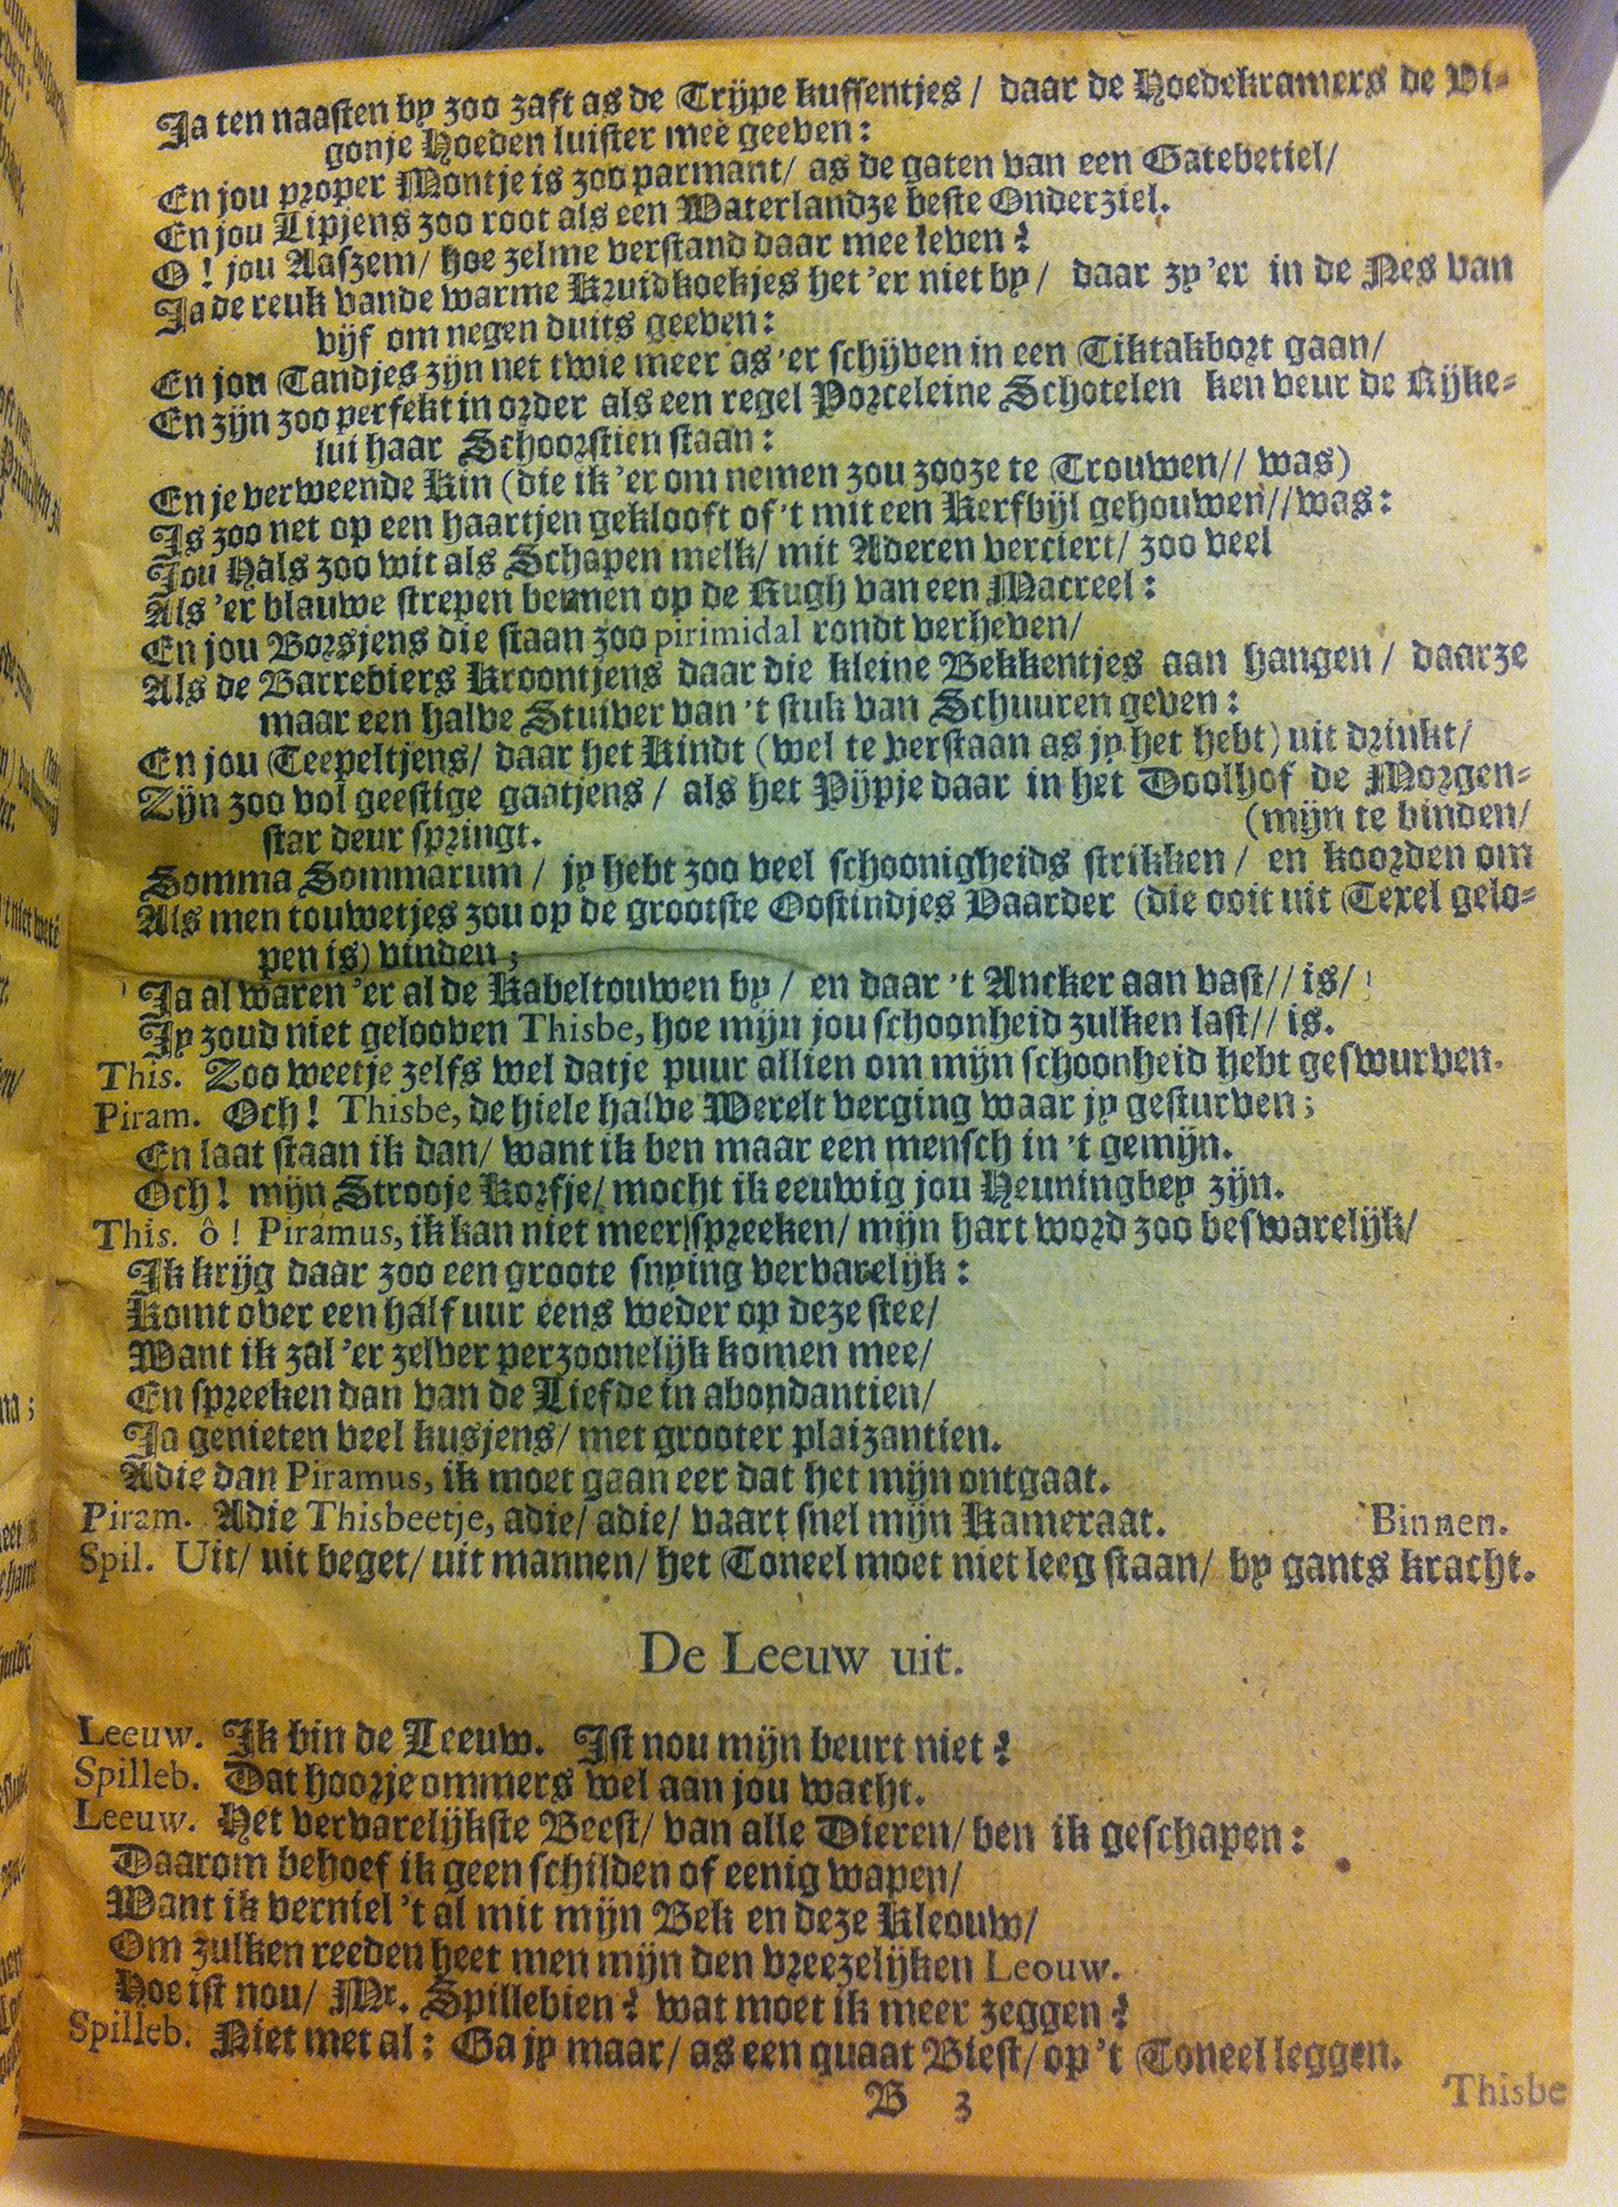 Ja ten naasten by zoo zaft as de Trijpe kussentjes / daar de Hoedekramers de Vi-
gonje Hoeden luister meê geeven:
En jou proper Montje is zoo parmant/ as de gaten van een Gatebetiel/
En jou Lipjens zoo root als een Waterlandze beste Onderziel.
O! jou Aaszem/ hoe zelme verstand daar mee leven?
Ja de reuk vande warme Kruidkoekjes het 'er niet by/ daar zy 'er in de Nes van
vijf om negen duits geeven:
En jou Tandjes zijn net twie meer as 'er schijven in een Tiktakbort gaan/
En zijn zoo perfekt in order als een regel Porceleine Schotelen ken veur de Rijke-
lui haar Schoorstien staan:
En je verweende Kin (die ik 'er om nemen zou zooze te Trouwen// was)
Is zoo net op een haartjen geklooft of 't mit een Kerfbijl gehouwen// was:
Jou Hals zoo wit als Schapen melk/ mit Aderen verciert/ zoo veel
Als 'er blauwe strepen bennen op de Rugh van een Macreel:
En jou Borsjens die staan zoo pirimidal rondt verheven/
Als de Barrebiers Kroontjens daar die kleine Bekkentjes aan hangen / daarze
maar een halve Stuiver van 't stuk van Schuuren geven:
En jou Teepeltjens/ daar het Kindt (wel te verstaan as jy het hebt) uit drinkt/
Zijn zoo vol geestige gaatjens / als het Pijpje daar in het Doolhof de Morgen-
star deur springt. (mijn te binden/
Somma Sommarum / jy hebt zoo veel schoonigheids strikken / en koorden om
Als men touwetjes zou op de grootste Oostindjes Vaarder (die ooit uit Texel gelo-
pen is) vinden;
Ja al waren 'er al de Kabeltouwen by / en daar 't Ancker aan vast// is/
Jy zoud niet gelooven Thisbe, hoe mijn jou schoonheid zulken last// is.
This. Zoo weetje zelfs wel datje puur allien om mijn schoonheid hebt geswurven.
Piram. Och! Thisbe, de hiele halve Werelt verging waar jy gesturven;
En laat staan ik dan/ want ik ben maar een mensch in 't gemijn.
Och! mijn Strooje Korfje/ mocht ik eeuwig jou Heuningbey zijn.
This. ô! Piramus, ik kan niet meer spreeken/ mijn hart word zoo beswarelijk/
Ik krijg daar zoo een groote snying vervarelijk:
Komt over een half uur eens weder op deze stee/
Want ik zal 'er zelver perzoonelijk komen mee/
En spreeken dan van de Liefde in abondantien/
Ja genieten veel kusjens/ met grooter plaizantien.
Adie dan Piramus, ik moet gaan eer dat het mijn ontgaat.
Piram. Adie Thisbeetje, adie/ adie/ vaart snel mijn Kameraat. Binnen.
Spil. Uit/ uit beget/ uit mannen/ het Toneel moet niet leeg staan/ by gants kracht.
De Leeuw uit.
Leeuw. Ik bin de Leeuw. Ist nou mijn beurt niet?
Spilleb. Dat hoorje ommers wel aan jou wacht.
Leeuw. Het vervarelijkste Beest/ van alle Dieren/ ben ik geschapen:
Daarom behoef ik geen schilden of eenig wapen/
Want ik verniel 't al mit mijn Bek en deze Kleouw/
Om zulken reeden heet men mijn den vreezelijken Leouw.
Hoe ist nou/ Mr. Spillebien? wat moet ik meer zeggen?
Spilleb. Niet met al: Ga jy maar/ as een quaat Biest/ op 't Toneel leggen.
B 3
Thisbe